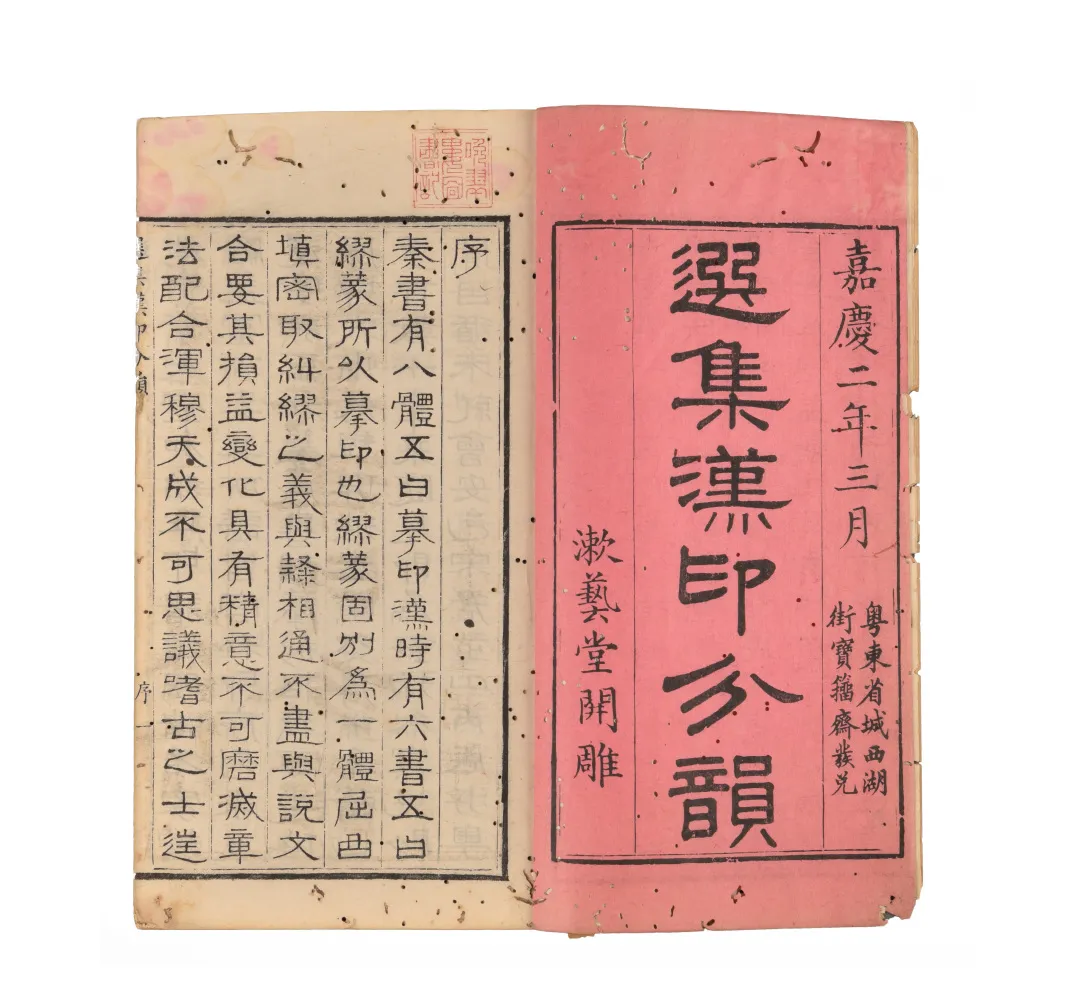 嘉慶二年三月
粵東省城西湖
街寶籀齋發兌
選集漢印分韻
漱藝堂開雕
序
秦書有八體五曰摹印漢時有六書五曰
繆篆所以摹印也繆篆固別爲一體屈曲
填密取糾繆之義與隸相通不盡與說文
合要其損益變化具有精意不可磨滅章
法配合渾穆天成不可思議嗜古之士往
選集漢印分韻
序
一